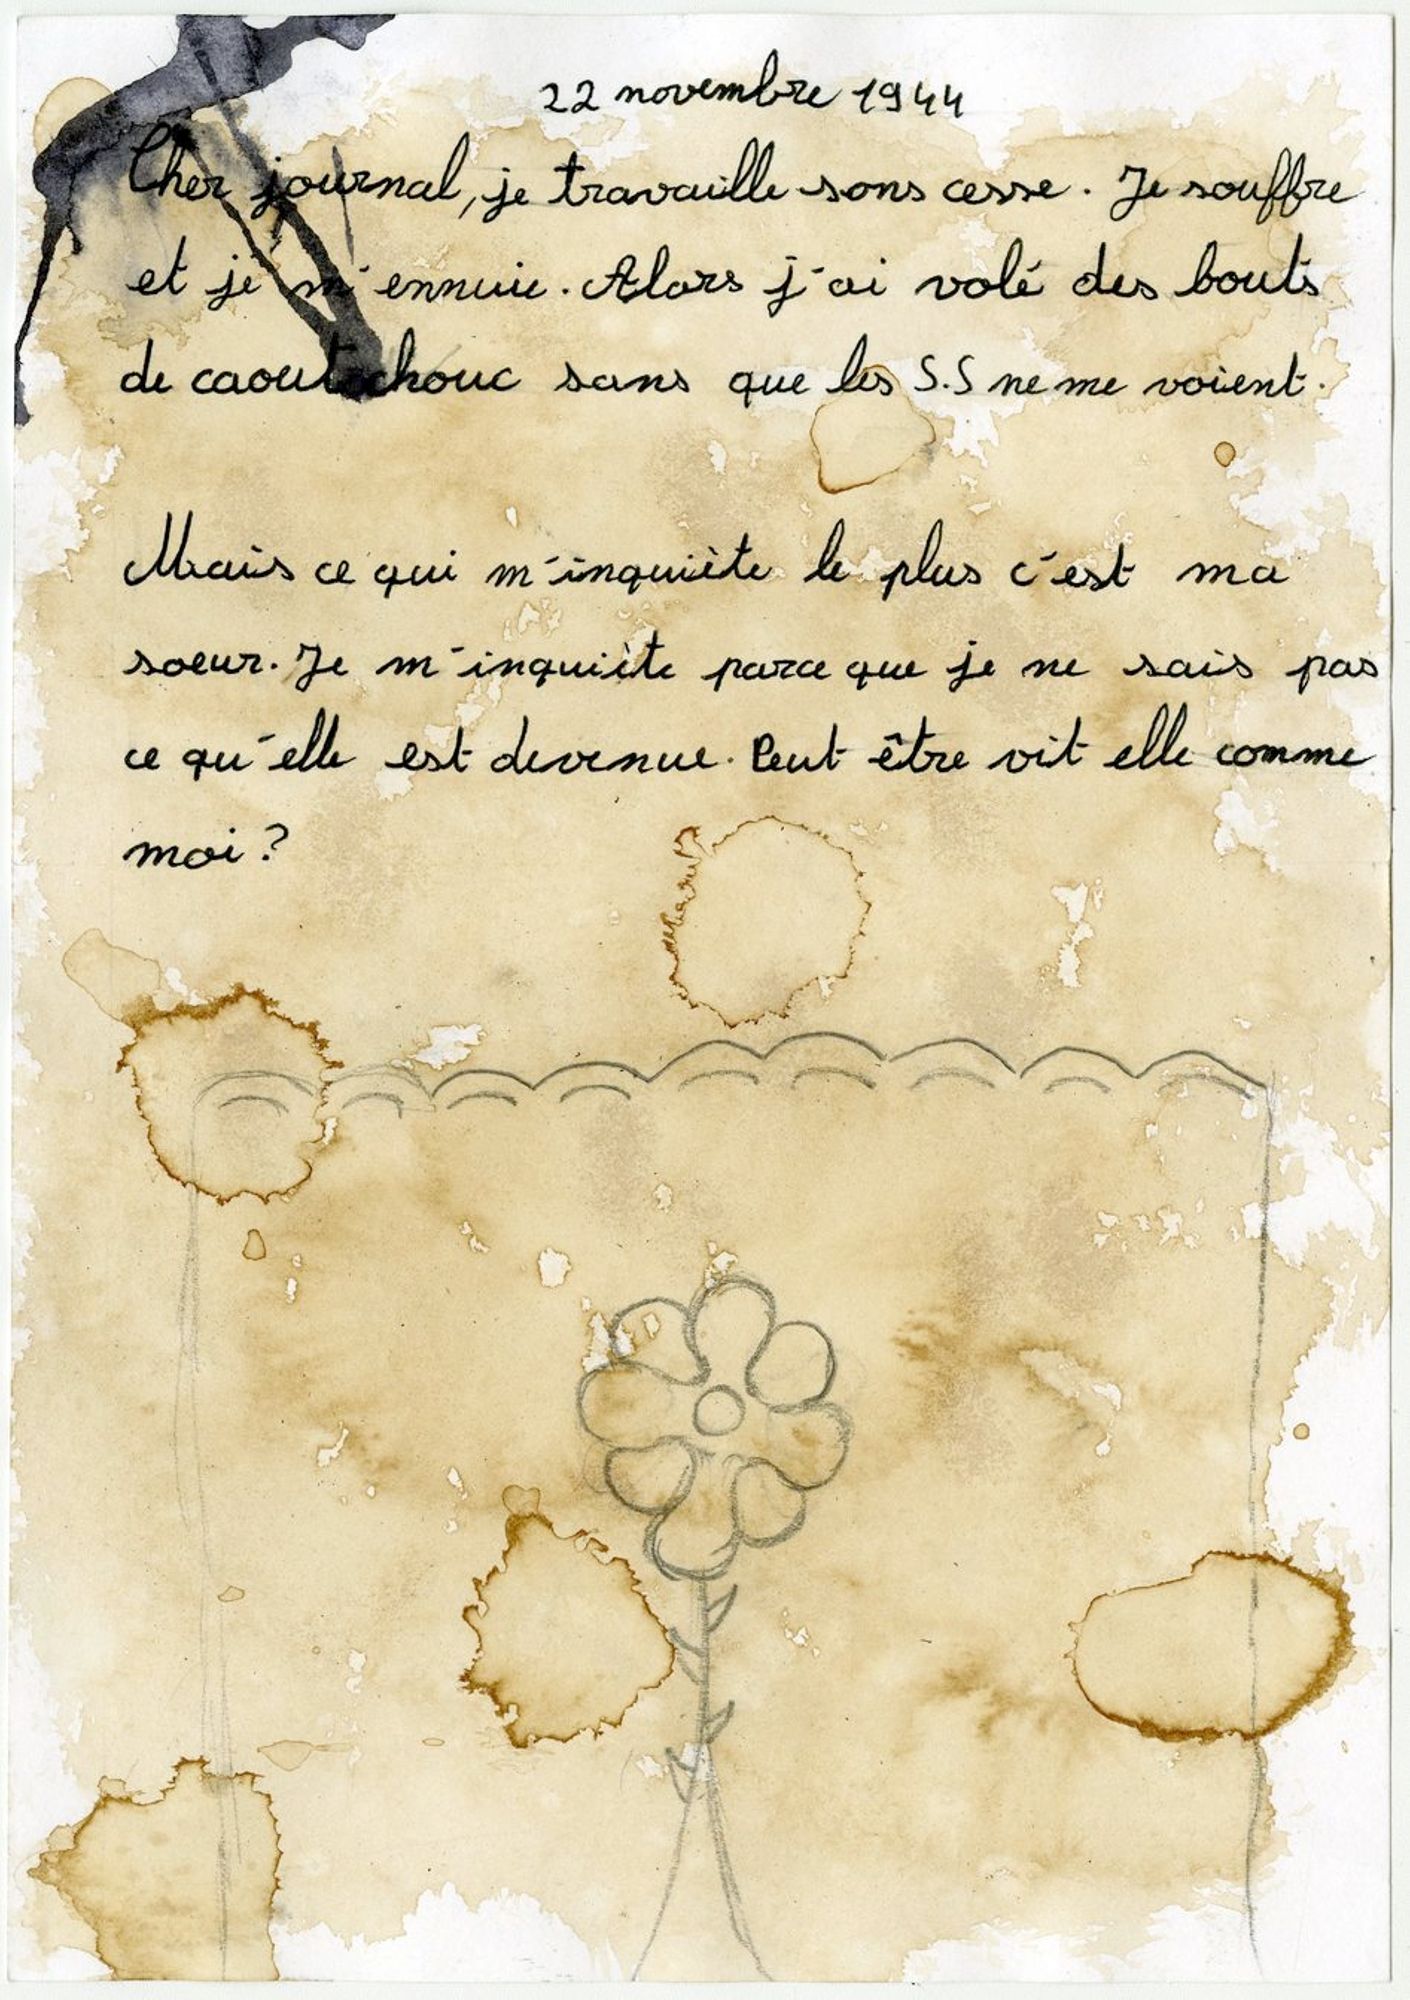 22 novembre 1944
Cher journal, je travaille sans cesse. Je souffre
et je m'ennuie. Alors j'ai volé des bouts
de caoutchouc sans que les S.S ne me voient.
Mais ce qui m'inquiète le plus c'est ma
soeur. Je m'inquiète parce que je ne sais pas
ce qu'elle est devenue. Peut être vit elle comme
moi ?